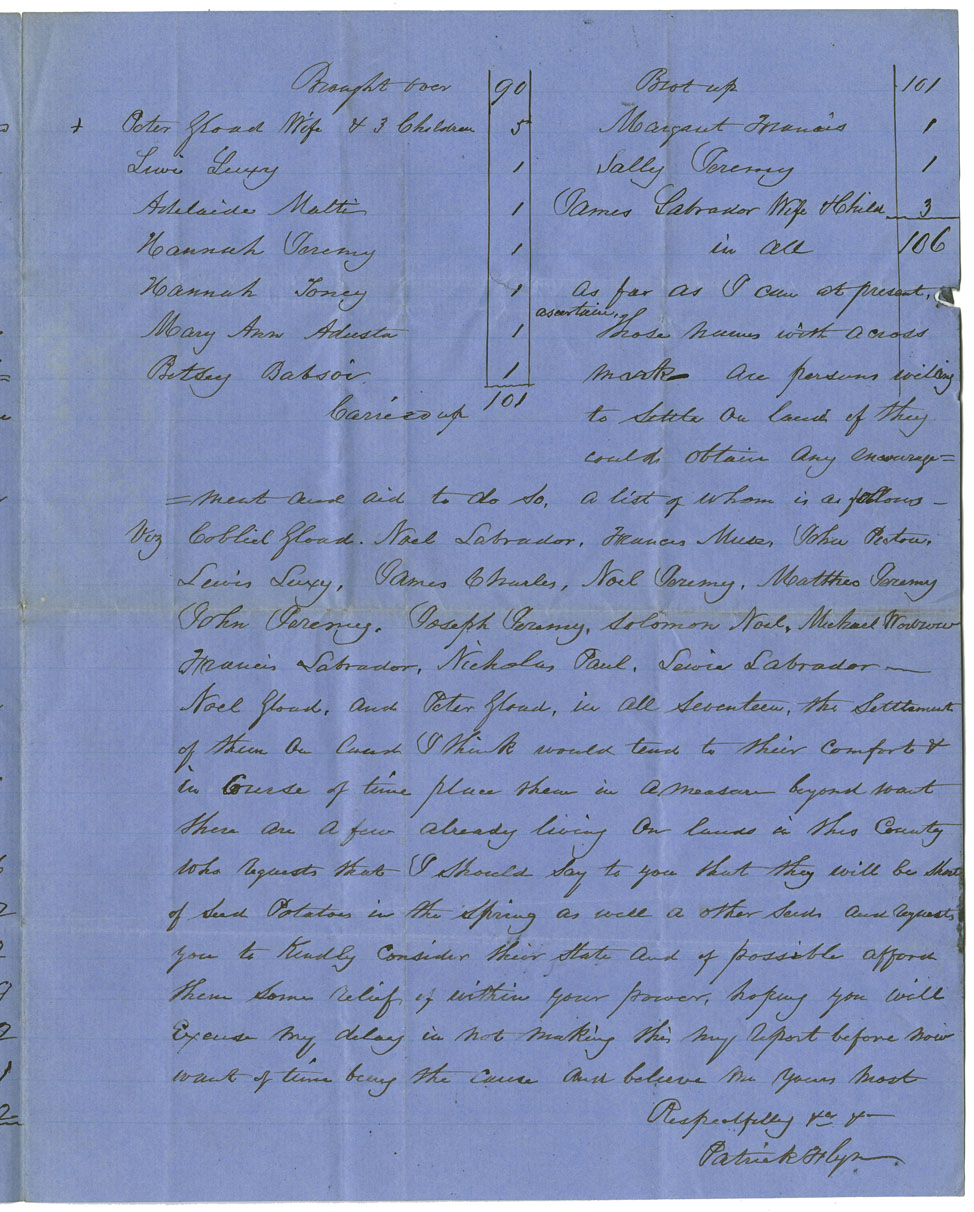 Brought over 90
+ Peter Gload Wife & 3 Children 5
Lewi Luxy 1
Adelaide Matti 1
Hannah Jeremy 1
Hannah Toney 1
Mary Ann Adusta 1
Betsey Babsoi 1
Carried up 101
Brot up 101
Margaret Francis 1
Sally Jeremy 1
James Labrador Wife & Child 3
in all 106
as far as I can at present,
ascertain, those names with across
mark are persons willing
to settle on land if they
could obtain any encourage=
=ment and aid to do so, a list of whom is as follows -
Viz Gload. Noel Labrador, Francis Muse, John Pictou,
Lewis Luxy, James Charles, Noel Jeremy, Matthew Jeremy
John Jeremy, Joseph Jeremy, Solomon Noel, Michael
Francis Labrador, Nicholas Paul, Lewie Labrador —
Noel Gload, and Peter Gload, in all Seventeen, the Settlement
of them on land I think would tend to their comfort &
in Course of time place them in a measure beyond want
there are a few already living on lands in this County
who requests that I should say to you that they will be short
of seed Potatoes in the spring as well a other seeds and requests
you to Kindly consider their state and if possible afford
them some relief if within your power, hoping you will
Excuse my delay in not making this my report before now
want of time being the cause and believe me yours most
Respectfully &c &
Patrick Flyn